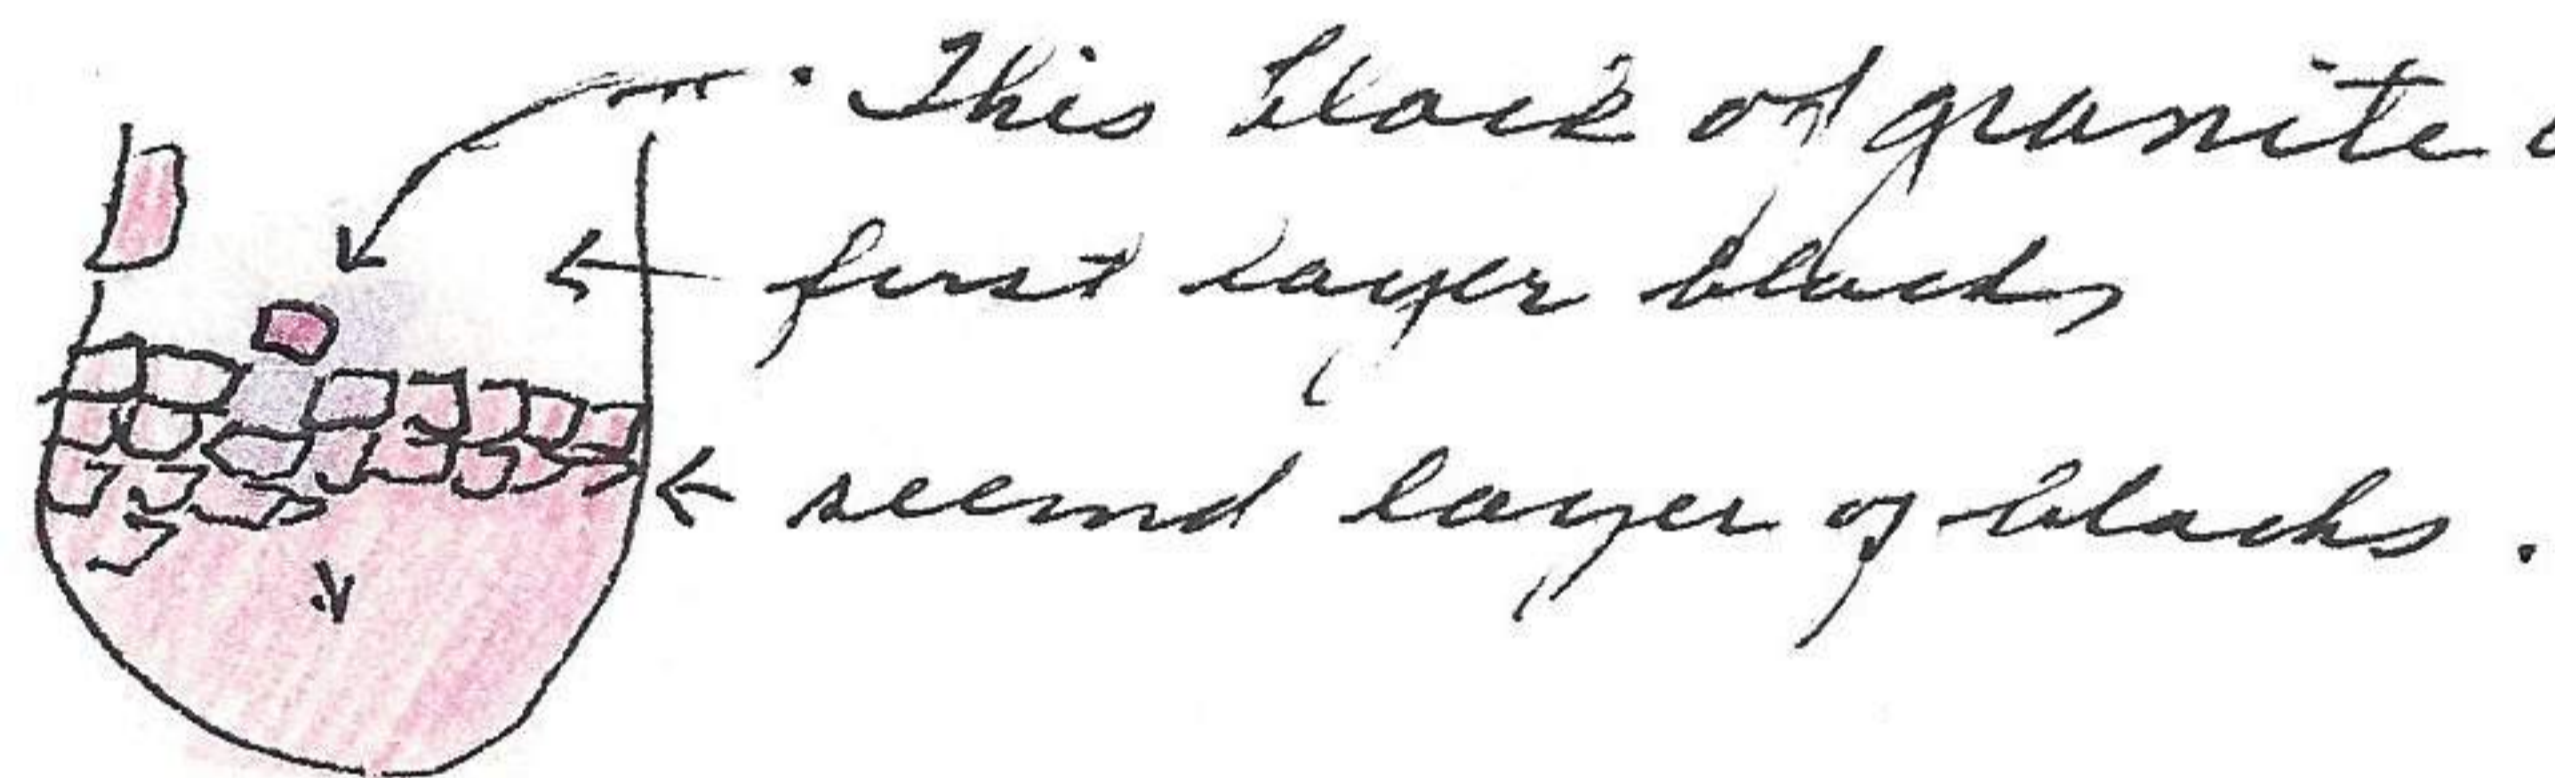 . This block of granite
first layer blocks
second layer of blocks.